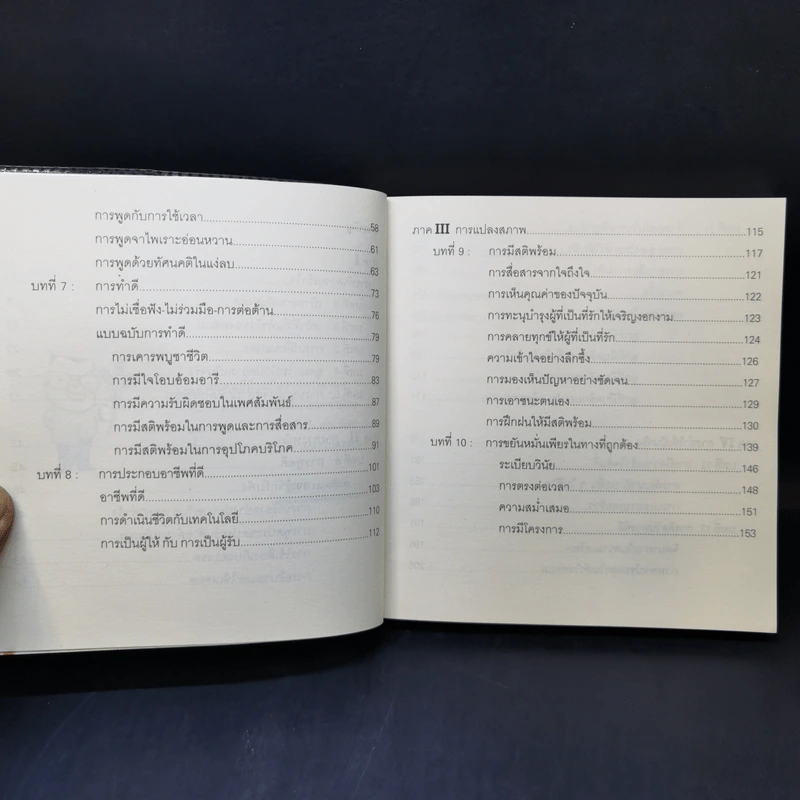 การพูดกับการใช้เวลา....58
การพูดจาไพเราะอ่อนหวาน....61
การพูดด้วยทัศนคติในแง่ลบ....63
บทที่ 7 : การทำดี....73
การไม่เชื่อฟัง-ไม่ร่วมมือ-การต่อต้าน....76
แบบฉบับการทำดี....79
การเคารพบูชาชีวิต....79
การมีใจโอบอ้อมอารี....83
การมีความรับผิดชอบในเพศสัมพันธ์....87
การมีสติพร้อมในการพูดและการสื่อสาร....89
การมีสติพร้อมในการอุปโภคบริโภค....91
บทที่ 8 : การประกอบอาชีพที่ดี....101
อาชีพที่ดี....103
การดำเนินชีวิตกับเทคโนโลยี....110
การเป็นผู้ให้ กับ การเป็นผู้รับ....112
ภาค III การแปลงสภาพ....115
บทที่ 9 : การมีสติพร้อม....117
การสื่อสารจากใจถึงใจ....121
การเห็นคุณค่าของปัจจุบัน....122
การทะนุบำรุงผู้ที่เป็นที่รักให้เจริญงอกงาม....123
การคลายทุกข์ให้ผู้ที่เป็นที่รัก....124
ความเข้าใจอย่างลึกซึ้ง....126
การมองเห็นปัญหาอย่างชัดเจน....127
การเอาชนะตนเอง....129
การฝึกฝนให้มีสติพร้อม....130
บทที่ 10 : การขยันหมั่นเพียรในทางที่ถูกต้อง....139
ระเบียบวินัย....146
การตรงต่อเวลา....148
ความสม่ำเสมอ....151
การมีโครงการ....153